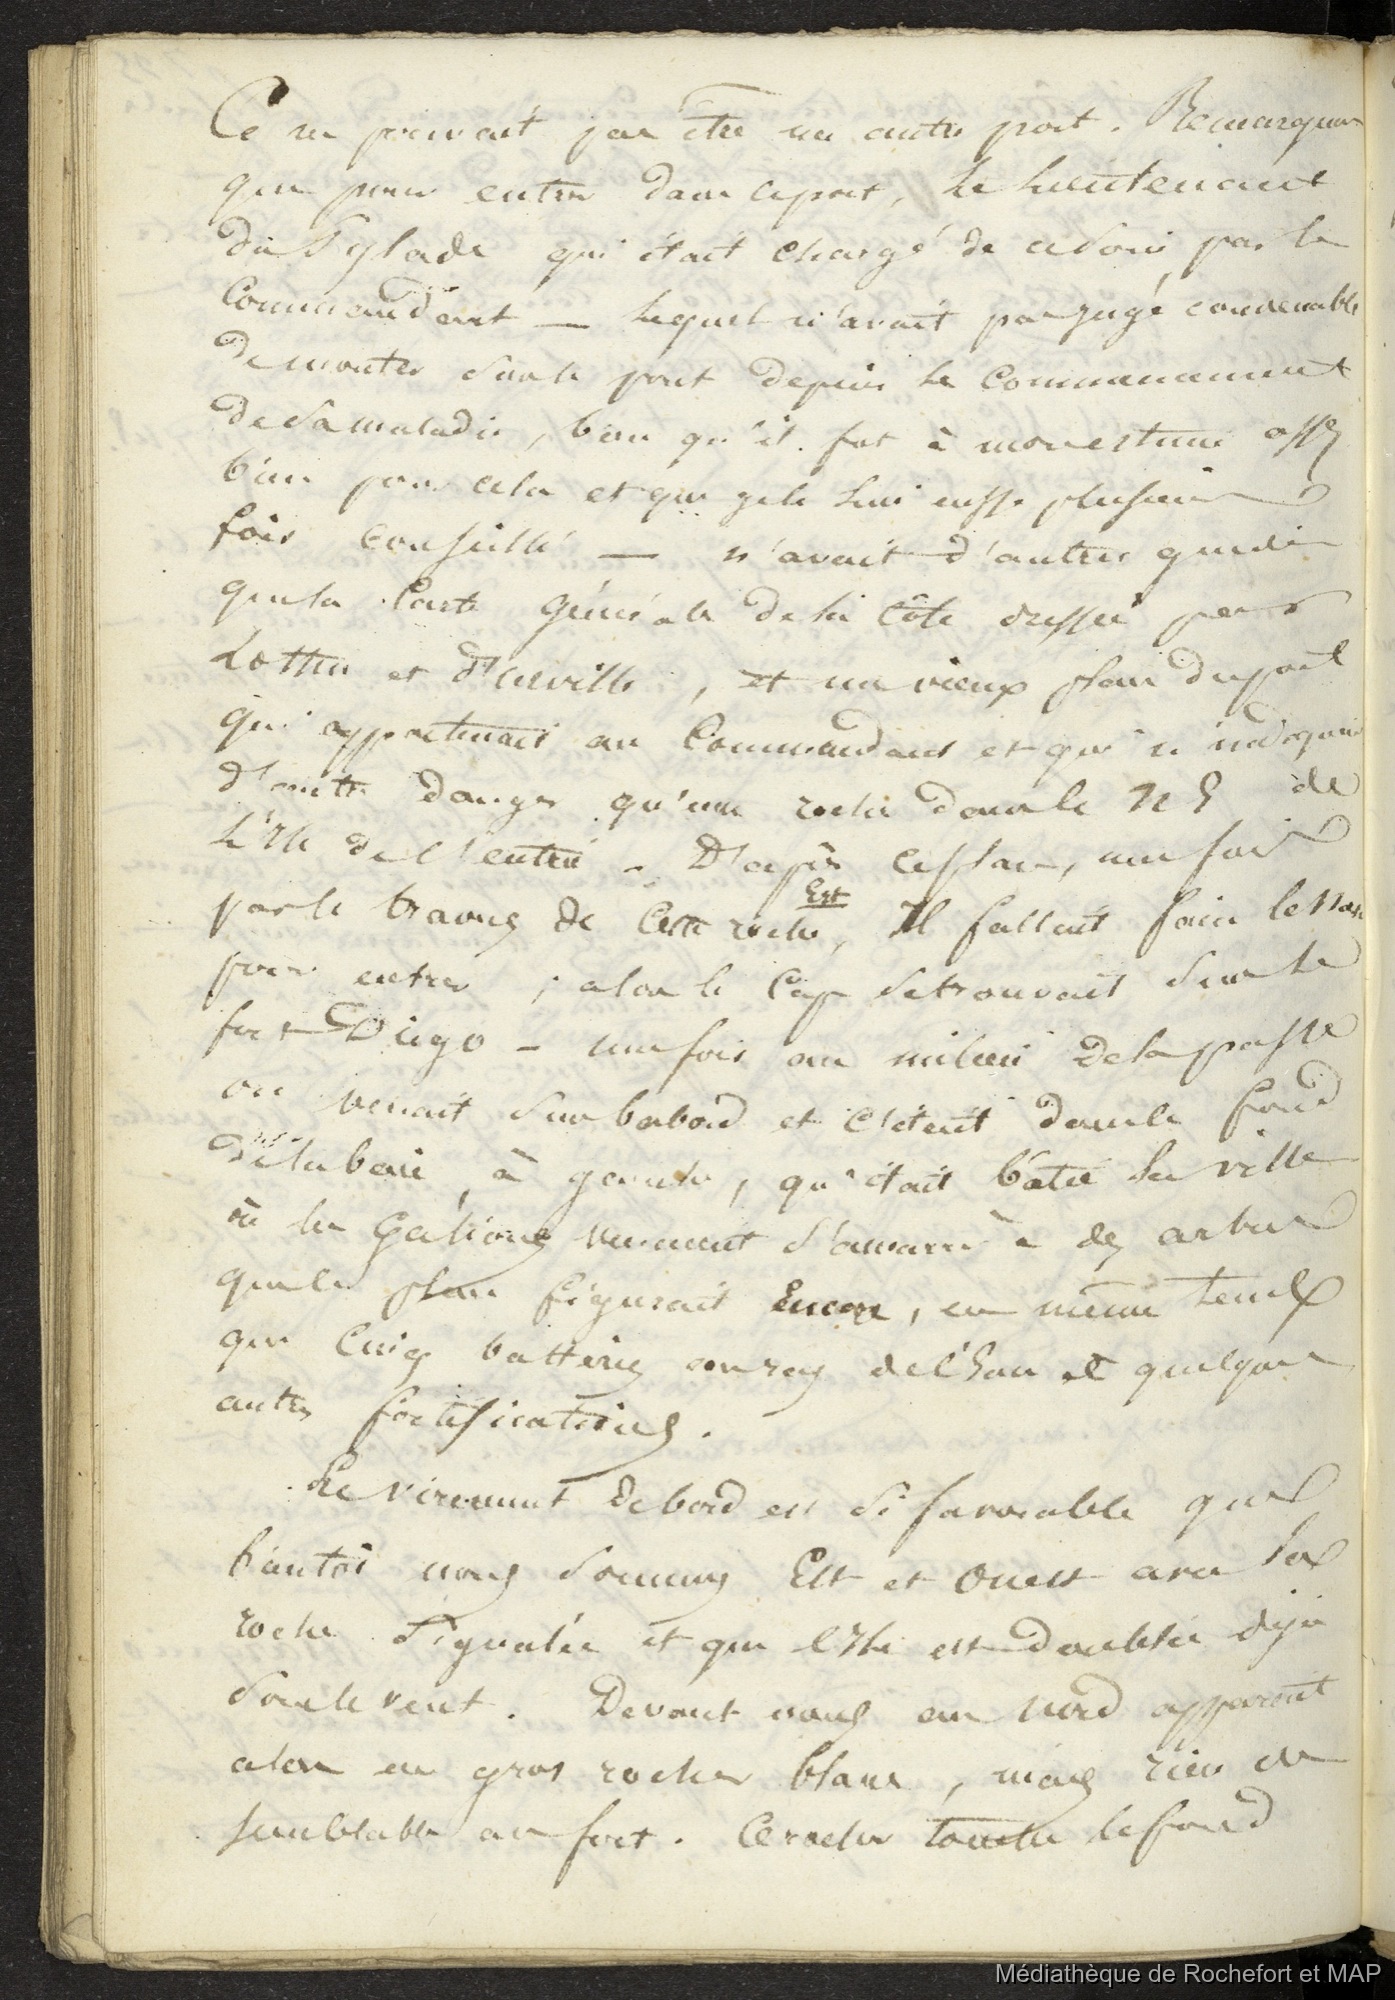 Ce ne pouvait pas être un autre port. Remarquons
que pour entrer dans ce port, le Lieutenant
du Pylade qui était chargé de ce soin par le
Commandant — lequel n'avait pas jugé convenable
de monter sur le pont depuis le commencement
de sa maladie, bien qu'il fut à mon estime assez
bien pour cela et que je le lui eusse plusieurs
fois conseillé — n'avait d'autres guides
que la Carte générale de la Côte dressée par
Lottin et d'Urville, et un vieux plan du port
qui appartenait au Commandant et qui n'indiquait
d'autre danger qu'une roche dans le NE de
l'Ile de l'entrée. D'après ce plan, une fois
par le travers Est de cette roche, il fallait faire le Nord
pour entrer; alors le Cap se trouvait sur le
fort Diego - une fois au milieu de la passe
on venait sur babord et c'était dans le fond
de la baie, à gauche, qu'était batie la ville
où les Galions venaient s'amarrer à des arbres
que le plan figurait Encore, en même temps
que cinq batteries au ras de l'Eau et quelques
autres fortifications.
Le virement de bord est si favorable que
bientôt nous sommes Est et Ouest avec la
roche signalée et que l'Ile est doublée déjà
sous le vent. Devant nous au Nord apparait
alors un gros rocher blanc, mais rien de
semblable au fort. Ce rocher touche le fond
Médiathèque de Rochefort et MAP